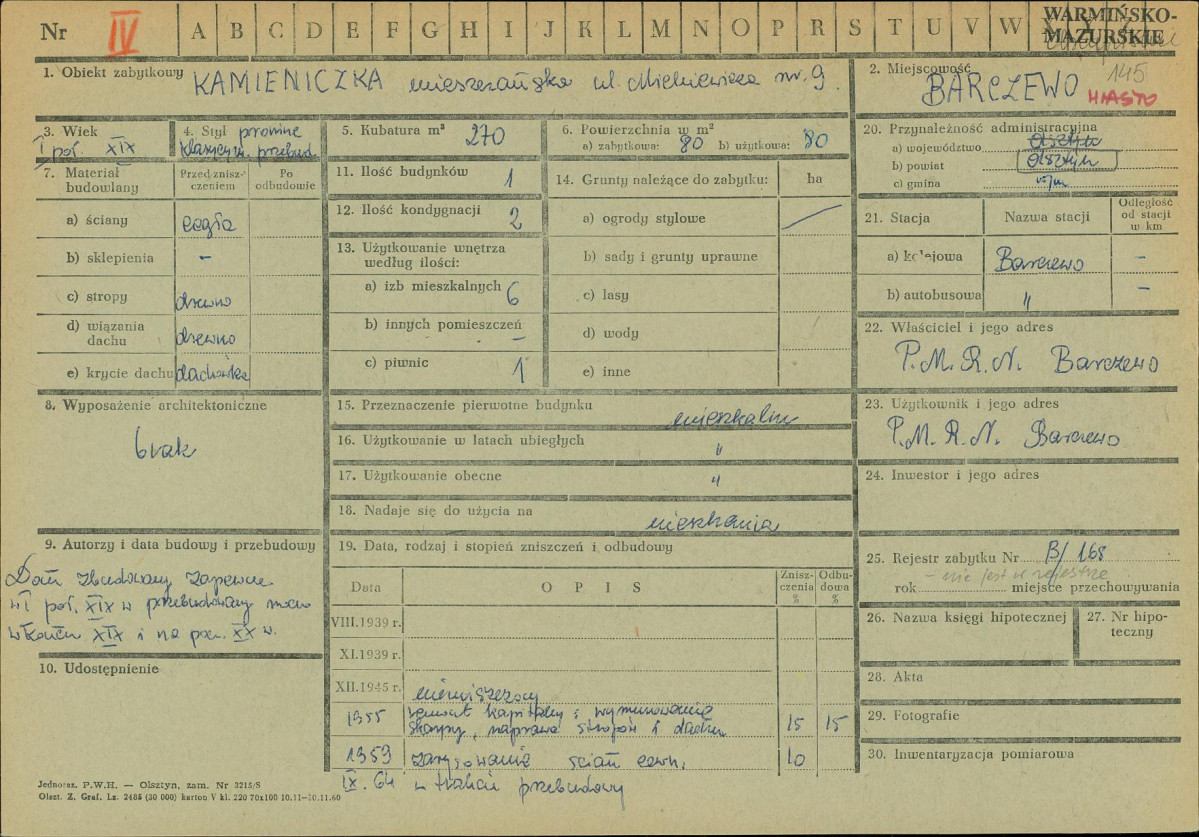 Nr IV A B C D E F G H I J K L M N O P R S T U V W X Y Z
WARMIŃSKO-
MAZURSKIE
1. Obiekt zabytkowy KAMIENICZKA mieszczańska ul. Mickiewicza nr. 9
2. Miejscowość 145
BARCZEWO MIASTO
3. Wiek
I poł. XIX
4. Styl prowinc
klasycyzm. przebud.
5. Kubatura m³ 270
6. Powierzchnia w m²
a) zabytkowa: 80 b) użytkowa: 80
7. Materiał budowlany
Przed zniszczeniem
Po odbudowie
a) ściany cegła
b) sklepienia –
c) stropy drewno
d) wiązania dachu drewno
e) krycie dachu dachówka
8. Wyposażenie architektoniczne
brak
9. Autorzy i data budowy i przebudowy
Dom zbudowany zapewne
w I poł. XIX w przebudowany
w końcu XIX i na pocz. XX w.
10. Udostępnienie
11. Ilość budynków 1
12. Ilość kondygnacji 2
13. Użytkowanie wnętrza
według ilości:
a) izb mieszkalnych 6
b) innych pomieszczeń –
c) piwnic 1
14. Grunty należące do zabytku: ha
a) ogrody stylowe
b) sady i grunty uprawne
c) lasy
d) wody
e) inne
15. Przeznaczenie pierwotne budynku mieszkalny
16. Użytkowanie w latach ubiegłych "
17. Użytkowanie obecne "
18. Nadaje się do użycia na mieszkania
19. Data, rodzaj i stopień zniszczeń i odbudowy
Data O P I S Zniszczenia % Odbudowa %
VIII.1939 r.
XI.1939 r.
XII.1945 r. niezniszczony
1955 remont kapitalny: wymurowanie
skarpy, naprawa stropów i dachu 15 15
1959 zarysowanie ścian zewn. 10
IX. 64 w trakcie przebudowy
20. Przynależność administracyjna
a) województwo Olsztyn
b) powiat Olsztyn
c) gmina
21. Stacja Nazwa stacji Odległość od stacji w km
a) kolejowa Barczewo –
b) autobusowa " –
22. Właściciel i jego adres
P.M.R.N. Barczewo
23. Użytkownik i jego adres
P.M.R.N. Barczewo
24. Inwestor i jego adres
25. Rejestr zabytku Nr B/168
– nie jest w rejestrze
rok miejsce przechowywania
26. Nazwa księgi hipotecznej
27. Nr hipoteczny
28. Akta
29. Fotografie
30. Inwentaryzacja pomiarowa
Jednoraz. P.W.H. — Olsztyn, zam. Nr 3215/S
Olszt. Z. Graf. Lz. 2485 (30 000) karton V kl. 220 70x100 10.11—30.11.60